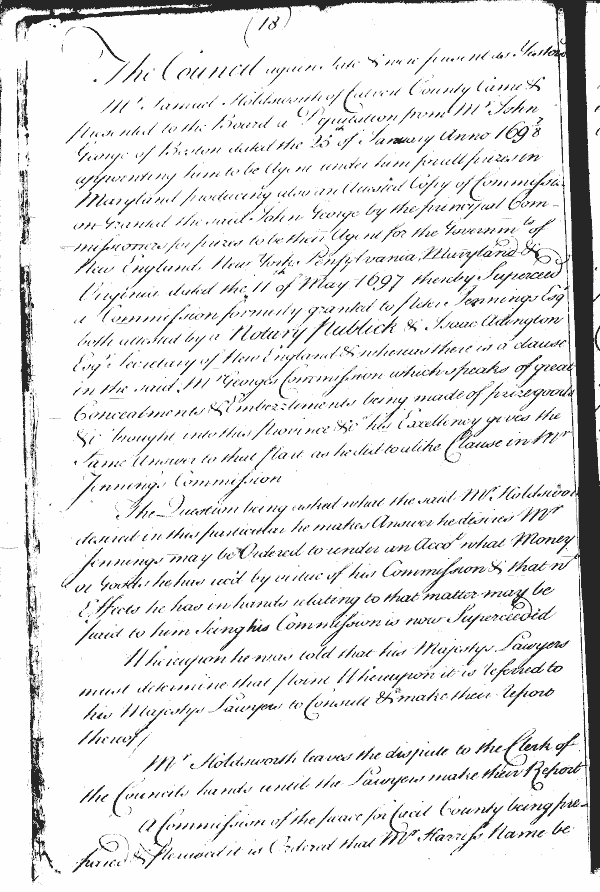 (18)
The Council again sate & were present as Yesterd
Mr. Samuel Holdsworth of Calvert County Came &
presented to the Board a Deputation from Mr. John
George of Boston dated the 25th of January Anno 1697/8
appointing him to be Agent under him for all prizes in
Maryland producing also an Attested Copy of Commissi
on granted the said John George by the principal Com-
missioners for prizes to be their Agent for the Governmts of
New England, New York, Pensylvania, Maryland &
Virginia dated the 11th of May 1697 thereby Superceed
a Commission formerly granted to Peter Jennings Esqr
both attested by a Notary Publick & Isaac Adington
Esqr Secretary of New England & whereas there is a clause
in the said Mr Georges Commission which speaks of great
Concealments & Embezzlments being made of prize goods
&c brought into this Province &c his Excellency gives the
Same Answer to that part as he did to alike Clause in Mr
Jennings Commission
The Question being asked what the said Mr. Holdswor
desired in this particular he makes Answer he desires Mr
Jennings may be Ordered to render an Accot what Money
or Goods he has recd by virtue of his Commission & that wt
Effects he has in hands relating to that matter may be
paid to him Seing his Commission is now Superceeded
Whereupon he was told that his Majestys Lawyers
must determine that point Whereupon it is referred to
his Majestys Lawyers to Consult & make their Report
thereof
Mr Holdsworth leaves the dispute to the Clerk of
the Councils hands until the Lawyers make their Report
A Commission of the peace for Cecil County being pre-
pared & perused it is Ordered that Mr Harriss Name be